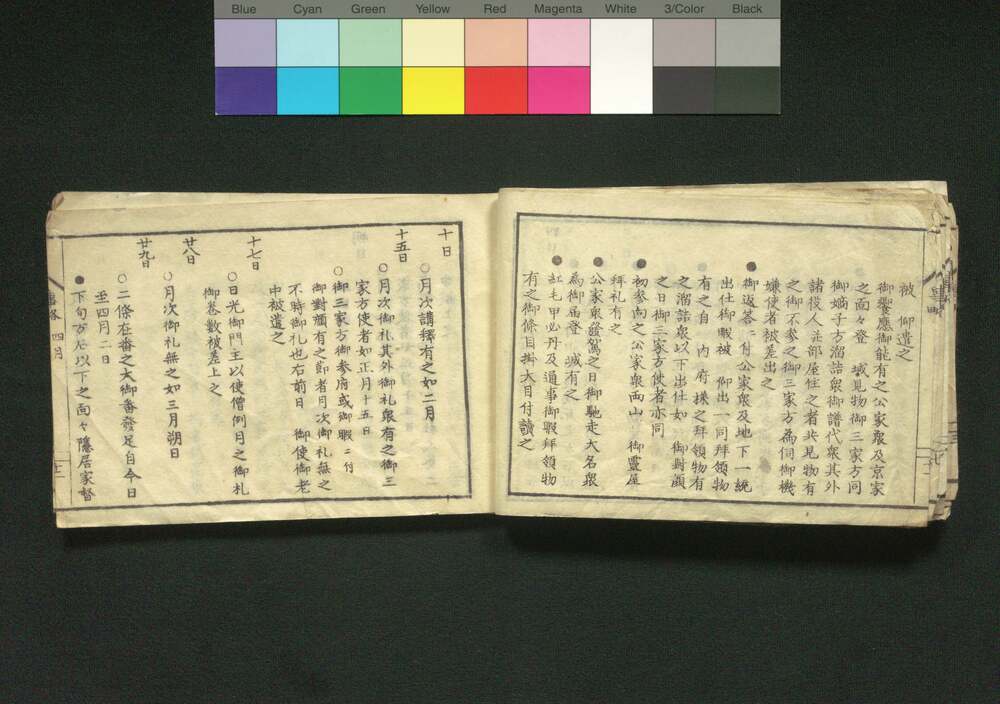 Blue Cyan Green Yellow Red Magenta White 3/Color Black
被 仰遣之
御饗應御能有之公家衆及京家
之面々登 城見物御三家方同
御嫡子方溜詰衆御譜代衆其外
諸役人並部屋住之者共見物有
之御不參之御三家方為伺御機
嫌使者被差出之
●
御返答ニ付公家衆及地下一統
出仕御暇被 仰出一同拜領物
有之自 内府様之拜領物有
之溜詰衆以下出仕如 御對顔
之日御三家方使者亦同
● 初參向之公家衆両山 御霊屋
拜礼有之
● 公家衆發駕之日御馳走大名衆
為御届登 城有之
● 紅毛甲必丹及通事御暇拜領物
有之御條目掛大目付讀之
十日
○月次講釋有之如二月
十五日
○月次御礼其外御礼衆有之御三
家方使者如正月十五日
○御三家方御参府或御暇ニ付
御對顔有之節者月次御礼無之
不時御礼也右前日 御使御老
中被遣之
十七日
○日光御門主以使僧例月之御札
御巻數被差上之
廿八日
○月次御礼無之如三月朔日
廿九日
○二條在番之大御番發足自今日
至四月二日
● 下旬万石以下之面々隠居家督
四月